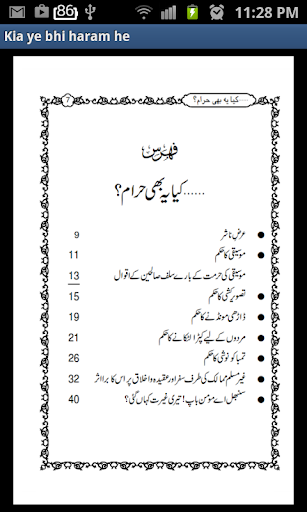 86
11:28 PM
Kia ye bhi haram he
7
کیا یہ بھی حرام؟
فہرس
......کیا یہ بھی حرام؟
عرض ناشر 9
موسیقی کا حکم 11
موسیقی کی حرمت کے بارے سلف صالحین کے اقوال 13
تصویر کشی کا حکم 15
داڑھی مونڈنے کا حکم 19
مردوں کے لیے کپڑا لٹکانے کا حکم 21
تمباکو نوشی کا حکم 26
غیر مسلم ممالک کی طرف سفر اور عقیدہ و اخلاق پر اس کا برا اثر 32
سنبھل اے مؤمن باپ! تیری غیرت کہاں گئی؟ 40